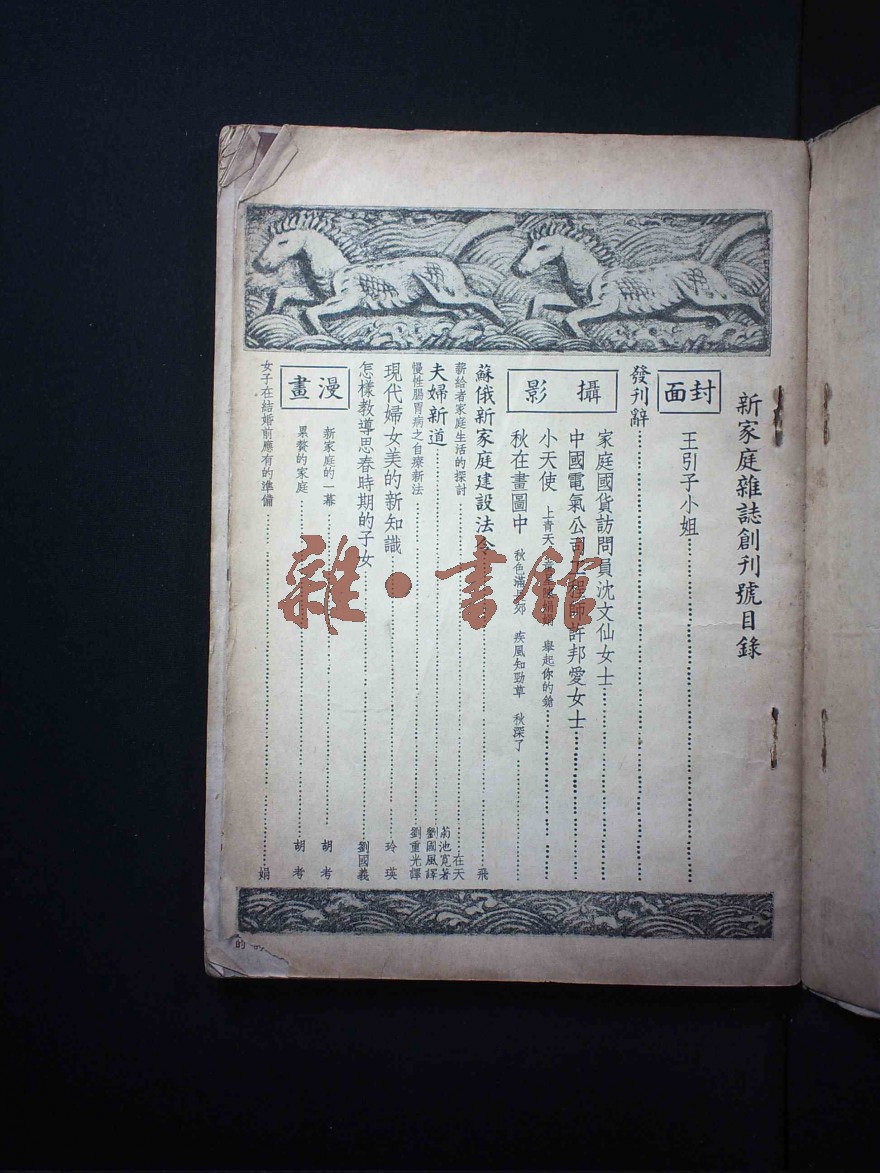 新家庭雜誌創刊號目錄
封面
王引子小姐
發刊辭
攝影
家庭國貨訪問員沈文仙女士
中國電氣公司工程師許邦愛女士
小天使 上青天 舉起你的鎗
秋在畫圖中 秋色滿 郊 疾風知勁草 秋深了
蘇俄新家庭建設法令 飛
薪給者家庭生活的探討 在天
夫婦新道 菊池寬著 劉國風譯
慢性腸胃病之自療新法 劉重光譯
現代婦女美的新知識 玲瑛
怎樣教導思春時期的子女 劉國義
漫畫
新家庭的一幕 胡考
累贅的家庭 胡考
女子在結婚前應有的準備 娟
的
雜·書館